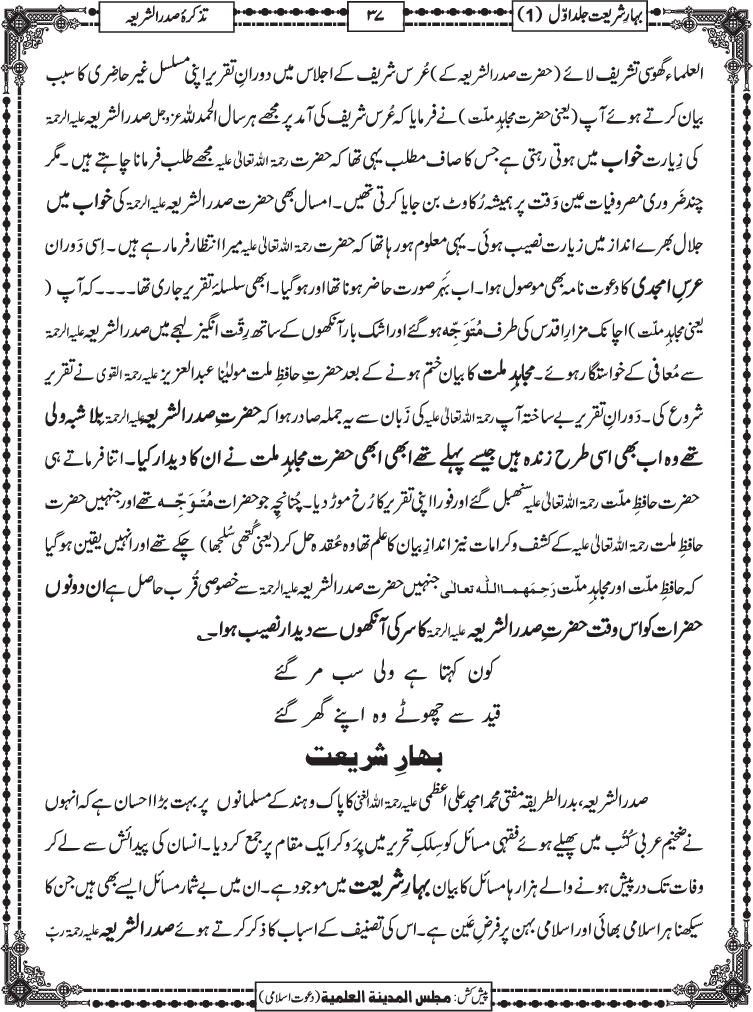 بہارِ شریعت جلد اوّل (1)
۳۷
تذکرۂ صدر الشریعہ
العلماء گھوسی تشریف لائے (حضرت صدر الشریعہ کے) عُرس شریف کے اجلاس میں دورانِ تقریر اپنی مسلسل غیر حاضِری کا سبب
بیان کرتے ہوئے آپ (یعنی حضرت مجاہدِ ملّت) نے فرمایا کہ عُرس شریف کی آمد پر مجھے ہر سال الحمد للہ عزوجل صدر الشریعہ علیہ الرحمۃ
کی زِیارت خواب میں ہوتی رہتی ہے جس کا صاف مطلب یہی تھا کہ حضرت رحمۃ اللہ تعالیٰ علیہ مجھے طلب فرمانا چاہتے ہیں ۔ مگر
چند ضَروری مصروفیات عین وَقت پر ہمیشہ رُکاوٹ بن جایا کرتی تھیں۔ امسال بھی حضرت صدر الشریعہ علیہ الرحمۃ کی خواب میں
جلال بھرے انداز میں زیارت نصیب ہوئی۔ یہی معلوم ہو رہا تھا کہ حضرت رحمۃ اللہ تعالیٰ علیہ میرا انتظار فرما رہے ہیں ۔ اِسی دَوران
عرسِ امجدی کا دعوت نامہ بھی موصول ہوا۔ اب بَہَر صورت حاضر ہونا تھا اور ہو گیا۔ ابھی سلسلۂ تقریر جاری تھا۔۔۔۔ کہ آپ (
یعنی مجاہدِ ملت) اچانک مزارِ اقدس کی طرف مُتَوَجِّہ ہو گئے اور اشک بار آنکھوں کے ساتھ رِقّت انگیز لہجے میں صدر الشریعہ علیہ الرحمۃ
سے مُعافی کے خواستگار ہوئے۔ مجاہدِ ملت کا بیان ختم ہونے کے بعد حضرتِ حافِظِ ملت مولیٰنا عبدالعزیز علیہ رحمۃ القوی نے تقریر
شروع کی۔ دَورانِ تقریر بے ساختہ آپ رحمۃ اللہ تعالیٰ علیہ کی زَبان سے یہ جملہ صادر ہوا کہ حضرتِ صدر الشریعہ علیہ الرحمۃ بلا شبہ ولی
تھے وہ اب بھی اسی طرح زندہ ہیں جیسے پہلے تھے ابھی ابھی حضرت مجاہدِ ملت نے ان کا دیدار کیا۔ اتنا فرماتے ہی
حضرت حافِظِ ملّت رحمۃ اللہ تعالیٰ علیہ سنبھل گئے اور فورا اپنی تقریر کا رُخ موڑ دیا۔ چُنانچِہ جو حضرات مُتَوَجِّہ تھے اور جنہیں حضرت
حافِظِ ملت رحمۃ اللہ تعالیٰ علیہ کے کشف و کرامات نیز اندازِ بیان کا علم تھا وہ عُقدہ حل کر (یعنی گُتھی سُلجھا) چکے تھے اور انہیں یقین ہو گیا
کہ حافِظِ ملّت اور مجاہدِ ملّت رَحِمَھُمَا اللّٰہ تعالٰی جنہیں حضرت صدر الشریعہ علیہ الرحمۃ سے خصوصی قُرب حاصل ہے ان دونوں
حضرات کو اس وقت حضرتِ صدر الشریعہ علیہ الرحمۃ کا سر کی آنکھوں سے دیدار نصیب ہوا۔؎
کون کہتا ہے ولی سب مر گئے
قید سے چھوٹے وہ اپنے گھر گئے
بہارِ شریعت
صدر الشریعہ، بدر الطریقہ مفتی محمد امجد علی اعظمی علیہ رحمۃ اللہ الغنی کا پاک و ہند کے مسلمانوں پر بہت بڑا احسان ہے کہ انہوں
نے ضخیم عربی کُتُب میں پھیلے ہوئے فقہی مسائل کو سِلکِ تحریر میں پِرَو کر ایک مقام پر جمع کر دیا۔ انسان کی پیدائش سے لے کر
وفات تک درپیش ہونے والے ہزارہا مسائل کا بیان بہارِ شریعت میں موجود ہے۔ ان میں بے شمار مسائل ایسے بھی ہیں جن کا
سیکھنا ہر اسلامی بھائی اور اسلامی بہن پر فرضِ عَین ہے۔ اس کی تصنیف کے اسباب کا ذکر کرتے ہوئے صدر الشریعہ علیہ رحمۃ ربّ
پیش کش: مجلس المدینۃ العلمیۃ (دعوت اسلامی)